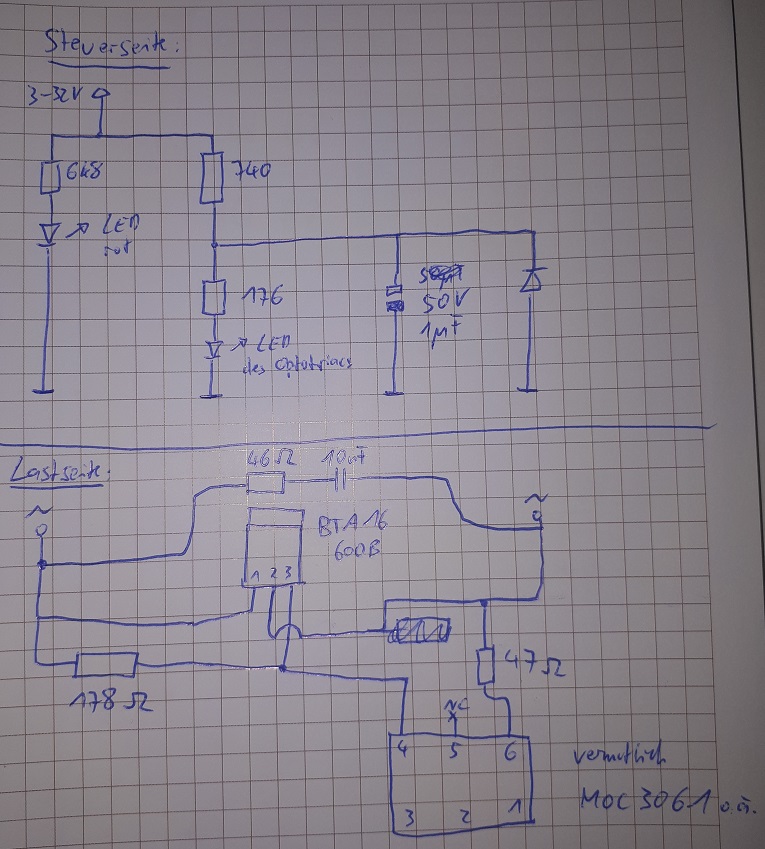 Steuerseite:
3-32V
6k8
740
LED
rot
176
LED
des Optotriacs
50V
1µF
Lastseite:
46Ω
10nF
~
~
BTA16
600B
1 2 3
178Ω
47Ω
NC
X
4 5 6
3 2 1
vermutlich
MOC3061 o.ä.